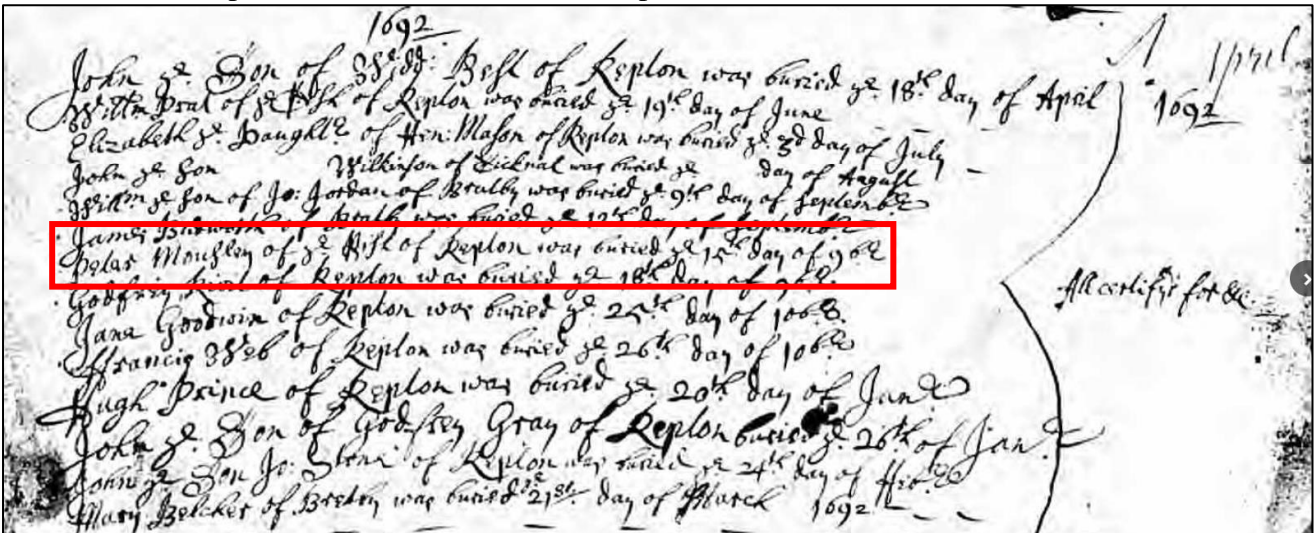 1692
John ye Son of Best of Repton was buried ye 18th day of April
Willm of ye of Repton was buried ye 19th day of June
Elizabeth ye Daughtr of Hen: Mason of Repton was buried ye 3d day of July
John ye Son Wilkinson of Ticknal was buried ye day of August
Willm ye Son of Jo: Jordan of Bratby was buried ye 9th day of Septembr
James of was buried ye 12th day of September
Peter Mousley of ye of Repton was buried ye 15th day of 9br
Godfrey of Repton was buried ye 18th day of 9br
Jane Goodwin of Repton was buried ye 25th day of 10br
Francis Web of Repton was buried ye 26th day of 10br
Hugh Prince of Repton was buried ye 20th day of Janr
John ye Son of Godfrey Gray of Repton buried ye 26th of Janr
John ye Son Jo: Stone of Repton was buried ye 24th day of Febr
Mary Belcher of Bretby was buried ye 21st day of March 1692
April
1692
All certify'd for &c